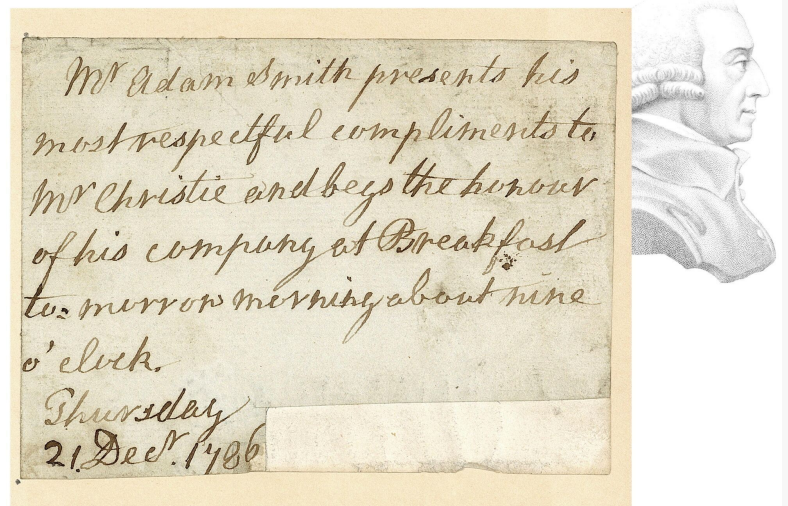 Mr Adam Smith presents his
most respectful compliments to
Mr Christie and begs the honour
of his company at Breakfast
to=morrow morning about nine
o'clock.
Thursday
21. Decr. 1786